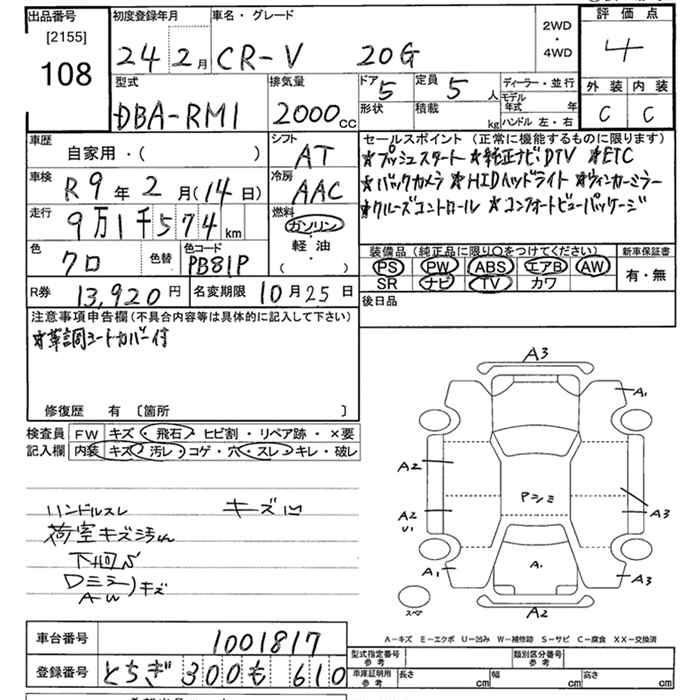 出品番号
[2155]
108
初度登録年月
24 2月
車名・グレード
CR-V 20G
2WD
・
4WD
評価点
4
型式
DBA-RM1
排気量
2000cc
ドア 5
定員 5人
形状
積載 kg
ディーラー・並行
モデル年式 年
ハンドル 左・右
外装 内装
C C
車歴
自家用・( )
シフト
AT
車検
R9年2月(14日)
冷房
AAC
走行
9万1千574km
燃料
ガソリン
軽油
( ・ )
色
クロ
色替
色コード
PB81P
R券 13,920円
名変期限 10月25日
セールスポイント (正常に機能するものに限ります)
★プッシュスタート ★純正ナビ,DTV ★ETC
★バックカメラ ★HIDヘッドライト ★ウィンカーミラー
★クルーズコントロール ★コンフォートビューパッケージ
装備品 (純正品に限り○をつけてください)
PS PW ABS エアB AW
SR ナビ TV カワ
新車保証書
有・無
後日品
注意事項申告欄 (不具合内容等は具体的に記入して下さい)
★革調シートカバー付
修復歴 有 〔箇所 〕
検査員記入欄
FW キズ・飛石・ヒビ割・リペア跡・×要
内装 キズ・汚レ・コゲ・穴・スレ・キレ・破レ
ハンドルスレ キズ凹
荷室キズ
下回S
Dミラーキズ
AW
A3
A1
A2
A2
U1
A1
Pシミ
A3
A.
A3
A2
スペア
A-キズ E-エクボ U-凹み W-補修跡 S-サビ C-腐食 XX-交換済
車台番号 1001817
登録番号 とちぎ 300 も 610
型式指定番号
参考
類別区分番号
参考
車庫証明用
参考
長さ cm
幅 cm
高さ cm